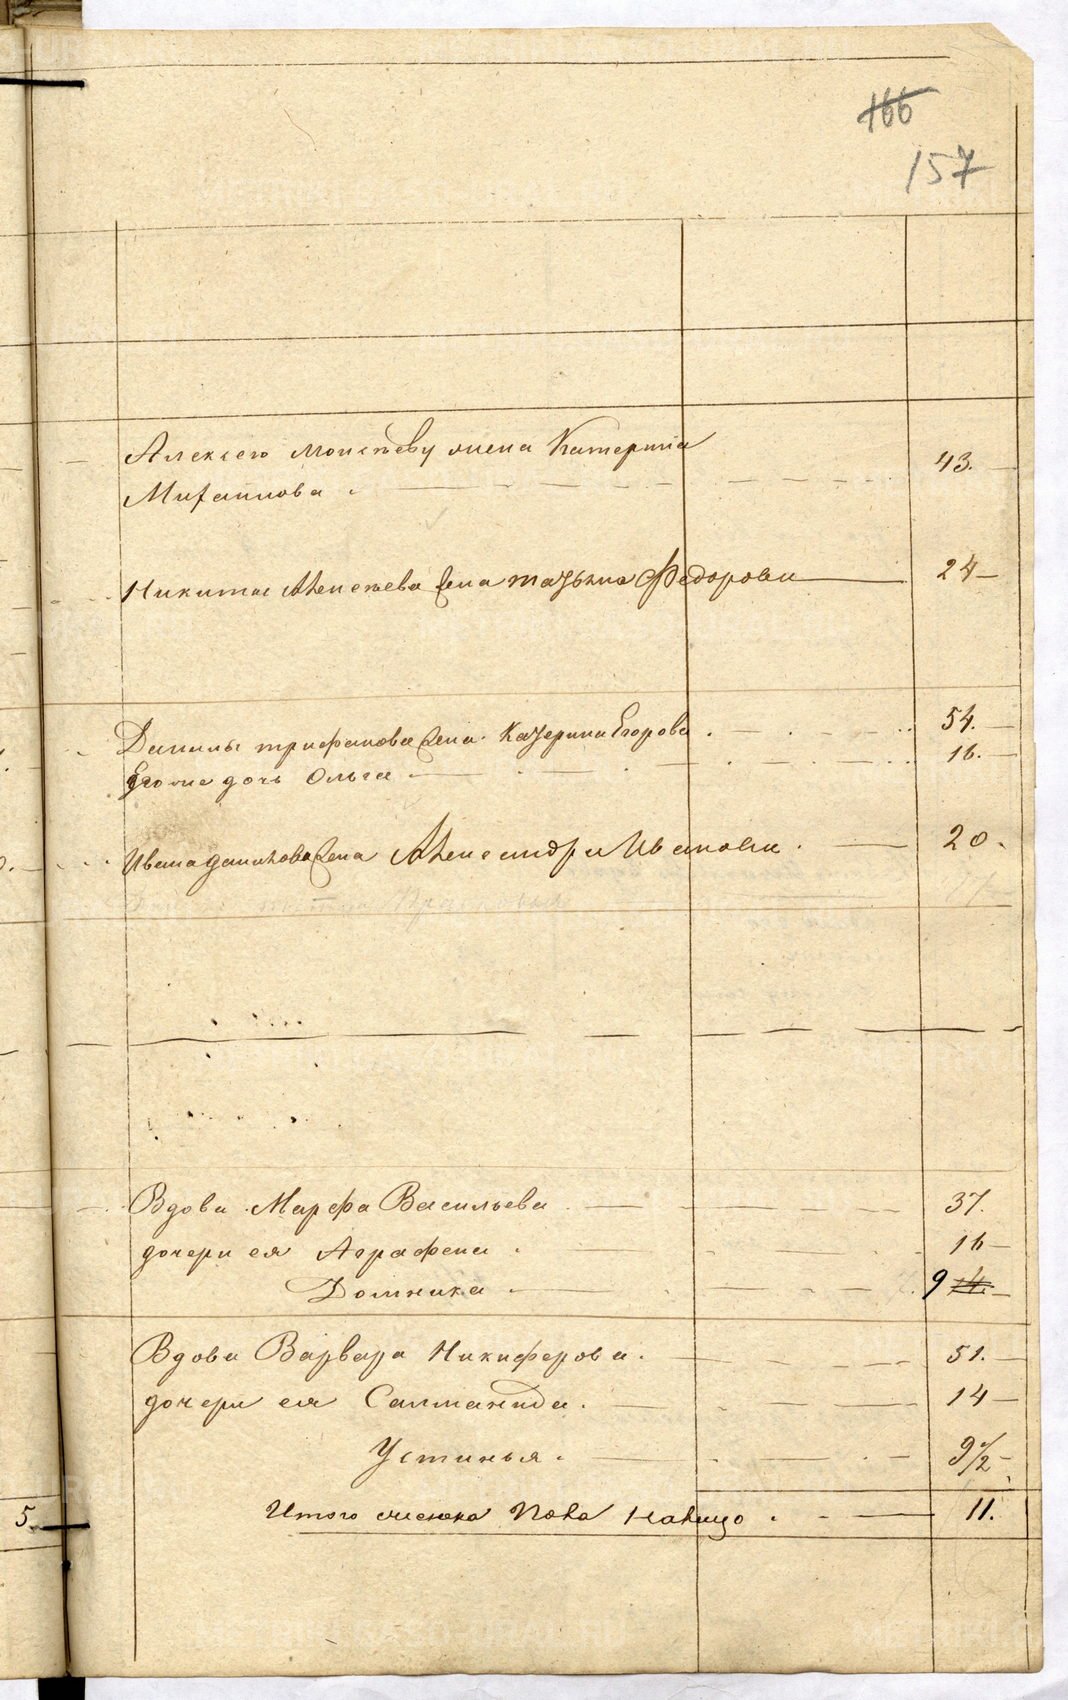 166
157
Алексею Моисѣеву жена Катерина
Михаилова
43.
Никиты Алексѣева жена Татьяна Федорова
24
Данилы Трифанова жена Катерина Егорова
54.
Его же дочь Ольга
16.
Ивана Данилова жена Александра Иванова
20.
Вдова Марфа Васильева
37.
дочери ея Аграфена
16
Домника
9 14.
Вдова Варвара Никиферова.
51.
дочери ея Саламанида.
14
Устинья.
9 1/2
Итого женска пола налицо
11.
5.